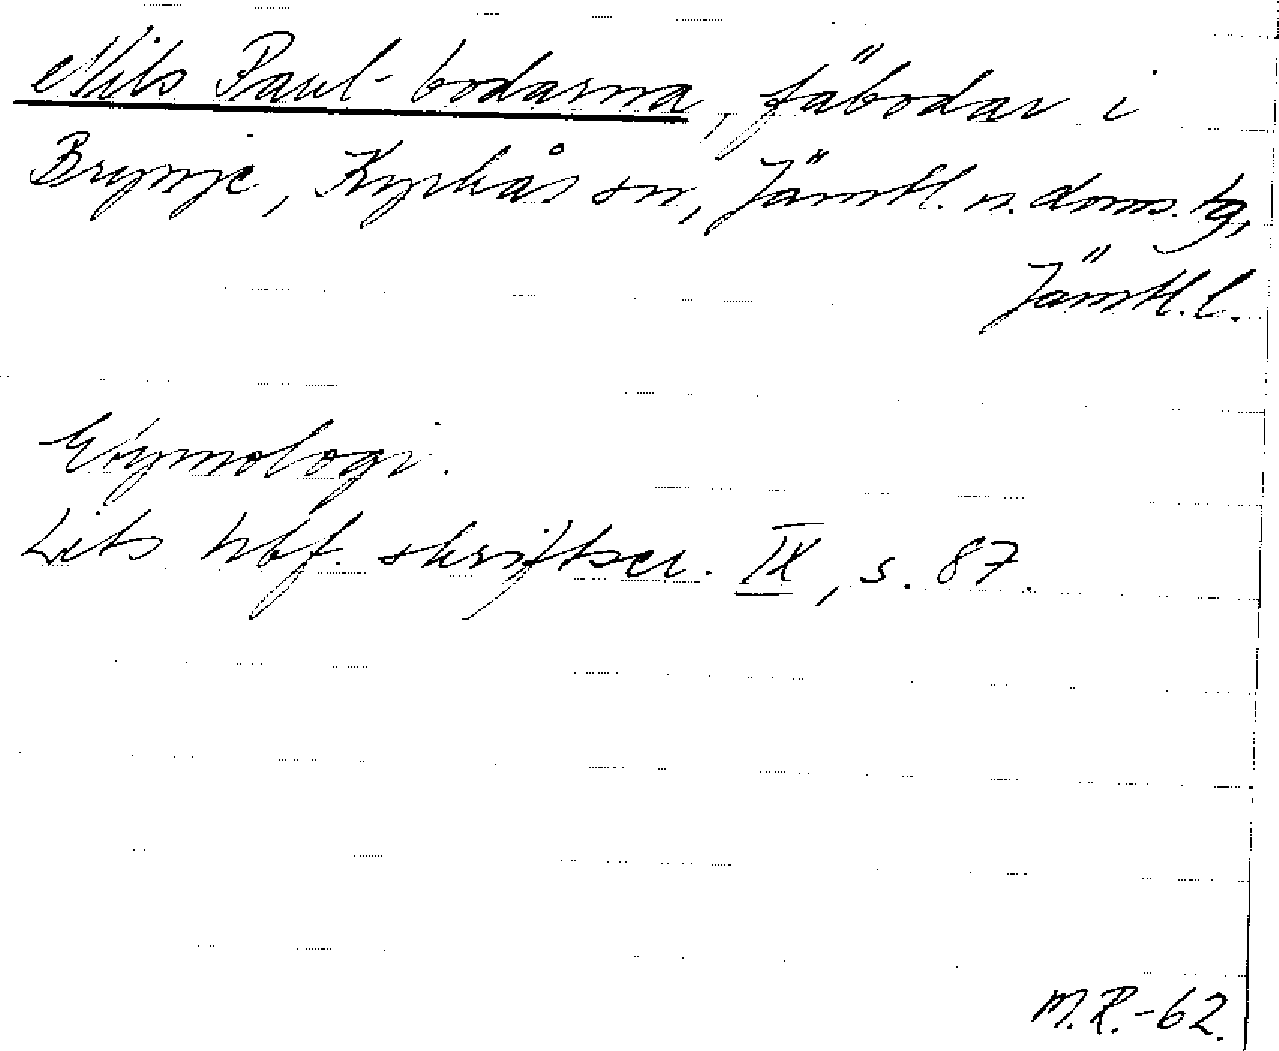 Nils Paul-bodarna, fäbodar i
Brynje, Kyrkås sn, Jämtl. n. doms. tg,
Jämtl. l.
Etymologi.
Lits hbf. skriftser. IX, s. 87.
M.R.-62.